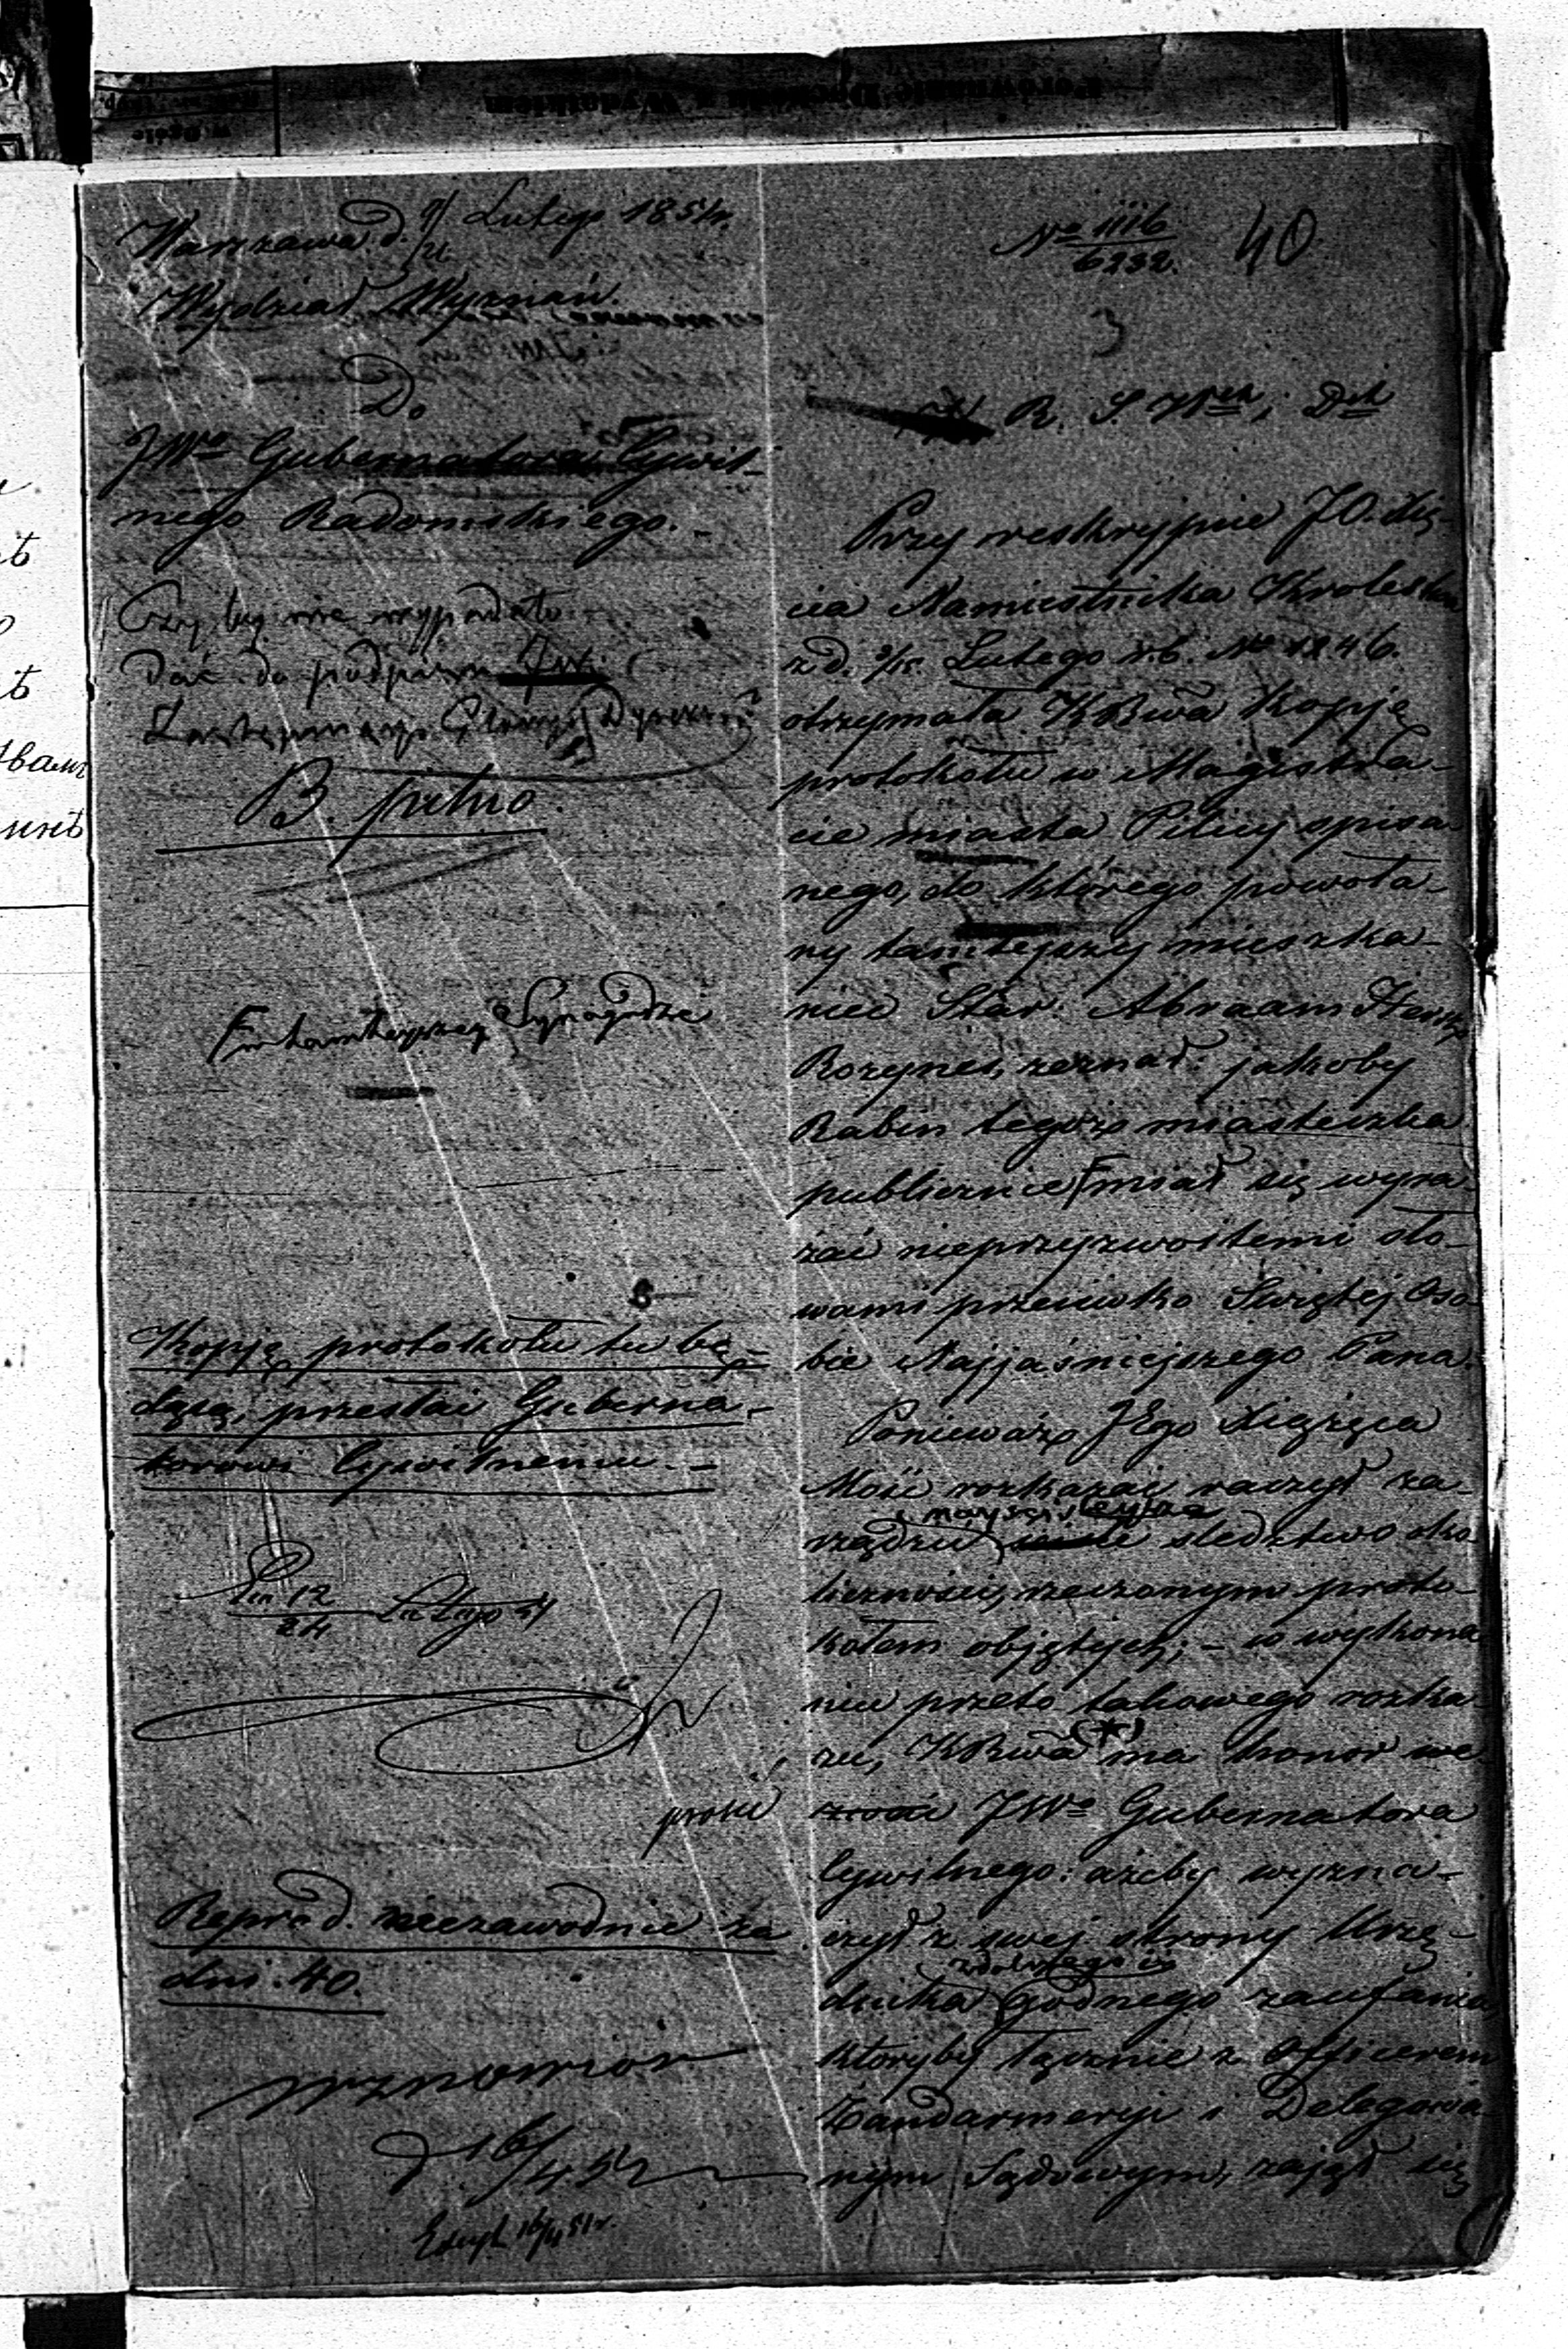 Warszawa d. 9/21 Lutego 1851 r.
Wydział Wyznań.
Do
JWo Gubernatora Cywil-
nego Radomskiego.
Czy by nie wypadało
dać do podpisu
B. pilno.
F w tamtejszej Synagodze
Kopję protokołu tu bę-
dącą, przesłać Guberna-
torowi Cywilnemu.
12/24 Lutego 51
prosić
Reprod. niezawodnie za
dni 40.
wznowion
d 16/4 51 r
16/4 51 r.
No 1116/6232.
40
3
K. R. S. W., D
Przy reskrypcie JO. Xię-
cia Namiestnika Królestwa
z d. 3/15 Lutego r. b. No 1246.
otrzymała KRwa Kopję
protokołu w Magistra-
cie miasta Pilicy spisa-
nego, do którego powoła-
ny tamtejszy mieszka-
niec Star. Abraam Hersz
Rozynes, zeznał: jakoby
Rabin tegoż miasteczka
publicznie F miał się wyra-
żać nieprzyzwoitemi sło-
wami przeciwko Świętej Oso-
bie Najjaśniejszego Pana.
Ponieważ JEgo Xiążęca
Mość rozkazać raczył za-
rządzić najściślejsze śledztwo oko-
liczności, rzeczonym proto-
kołem objętych; – w wykona-
niu przeto takowego rozka-
zu, KRwa (*) ma honor we
zwać JWo Gubernatora
Cywilnego: ażeby wyzna-
czył z swej strony Urzę-
dnika zdolnego i godnego zaufania
któryby łącznie z Officerem
Żandarmerji i Delegowa-
nym Sądowym, zajął się